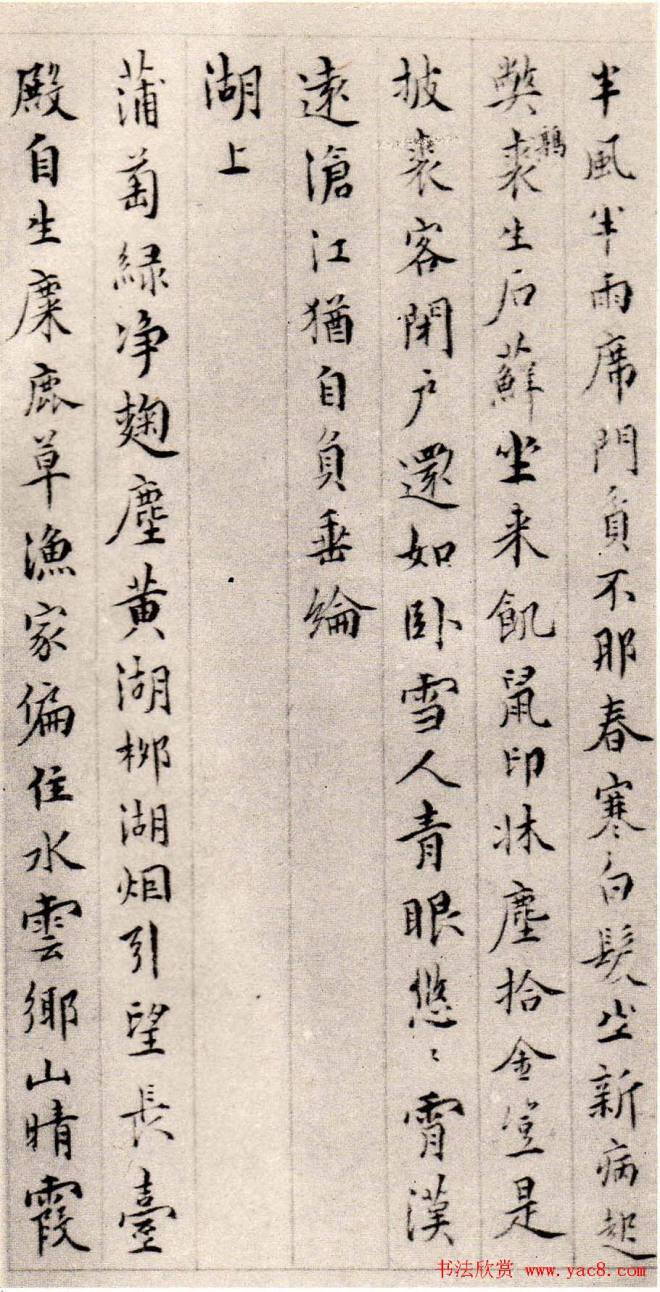 半風半雨席門貧不那春寒白髮生新病起
鷫
弊裘生后蘇坐来飢鼠印牀塵拾金豈是
披裘客閉户還如卧雪人青眼悠〻霄漢
遠滄江猶自負垂綸
湖上
蒲萄綠净麹塵黄湖柳湖烟引望長臺
殿自生麋鹿草漁家偏住水雲鄉山晴霞
书法欣赏 www.yac8.com